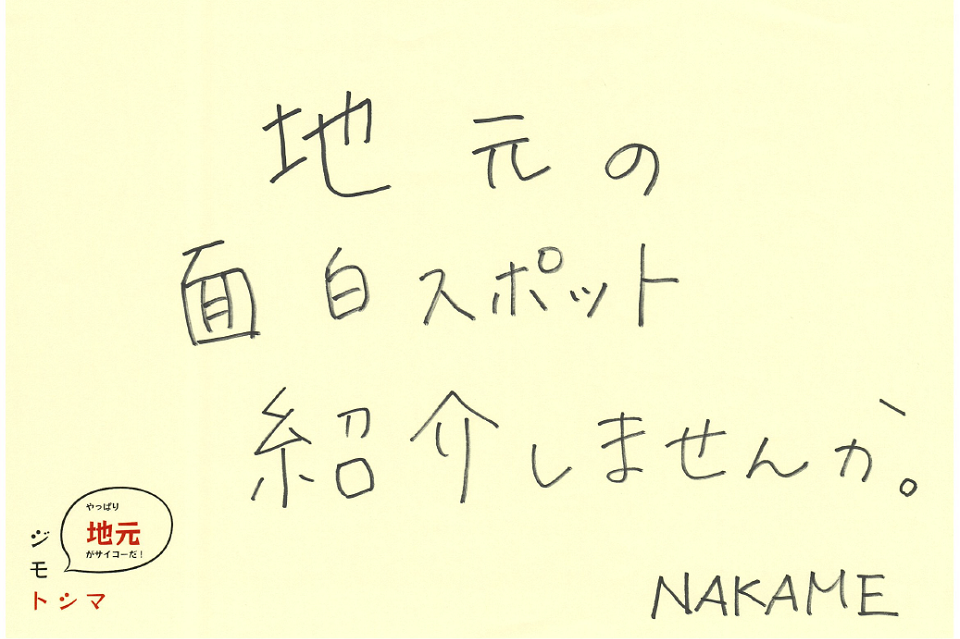 地元の
面白スポット
紹介しませんか。
やっぱり
地元
がサイコーだ!
ジモ
トシマ
NAKAME